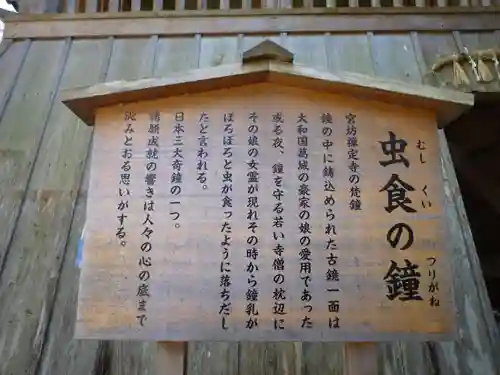 虫食の鐘
むし くい つりがね
宮坊禅定寺の梵鐘
鐘の中に鋳込められた古鏡一面は
大和国葛城の豪家の娘の愛用であった
或る夜、鐘を守る若い寺僧の枕辺に
その娘の女霊が現れその時から鐘乳が
ぼろぼろと虫が食ったように落ちだし
たと言われる。
日本三大奇鐘の一つ。
諸願成就の響きは人々の心の底まで
沁みとおる思いがする。